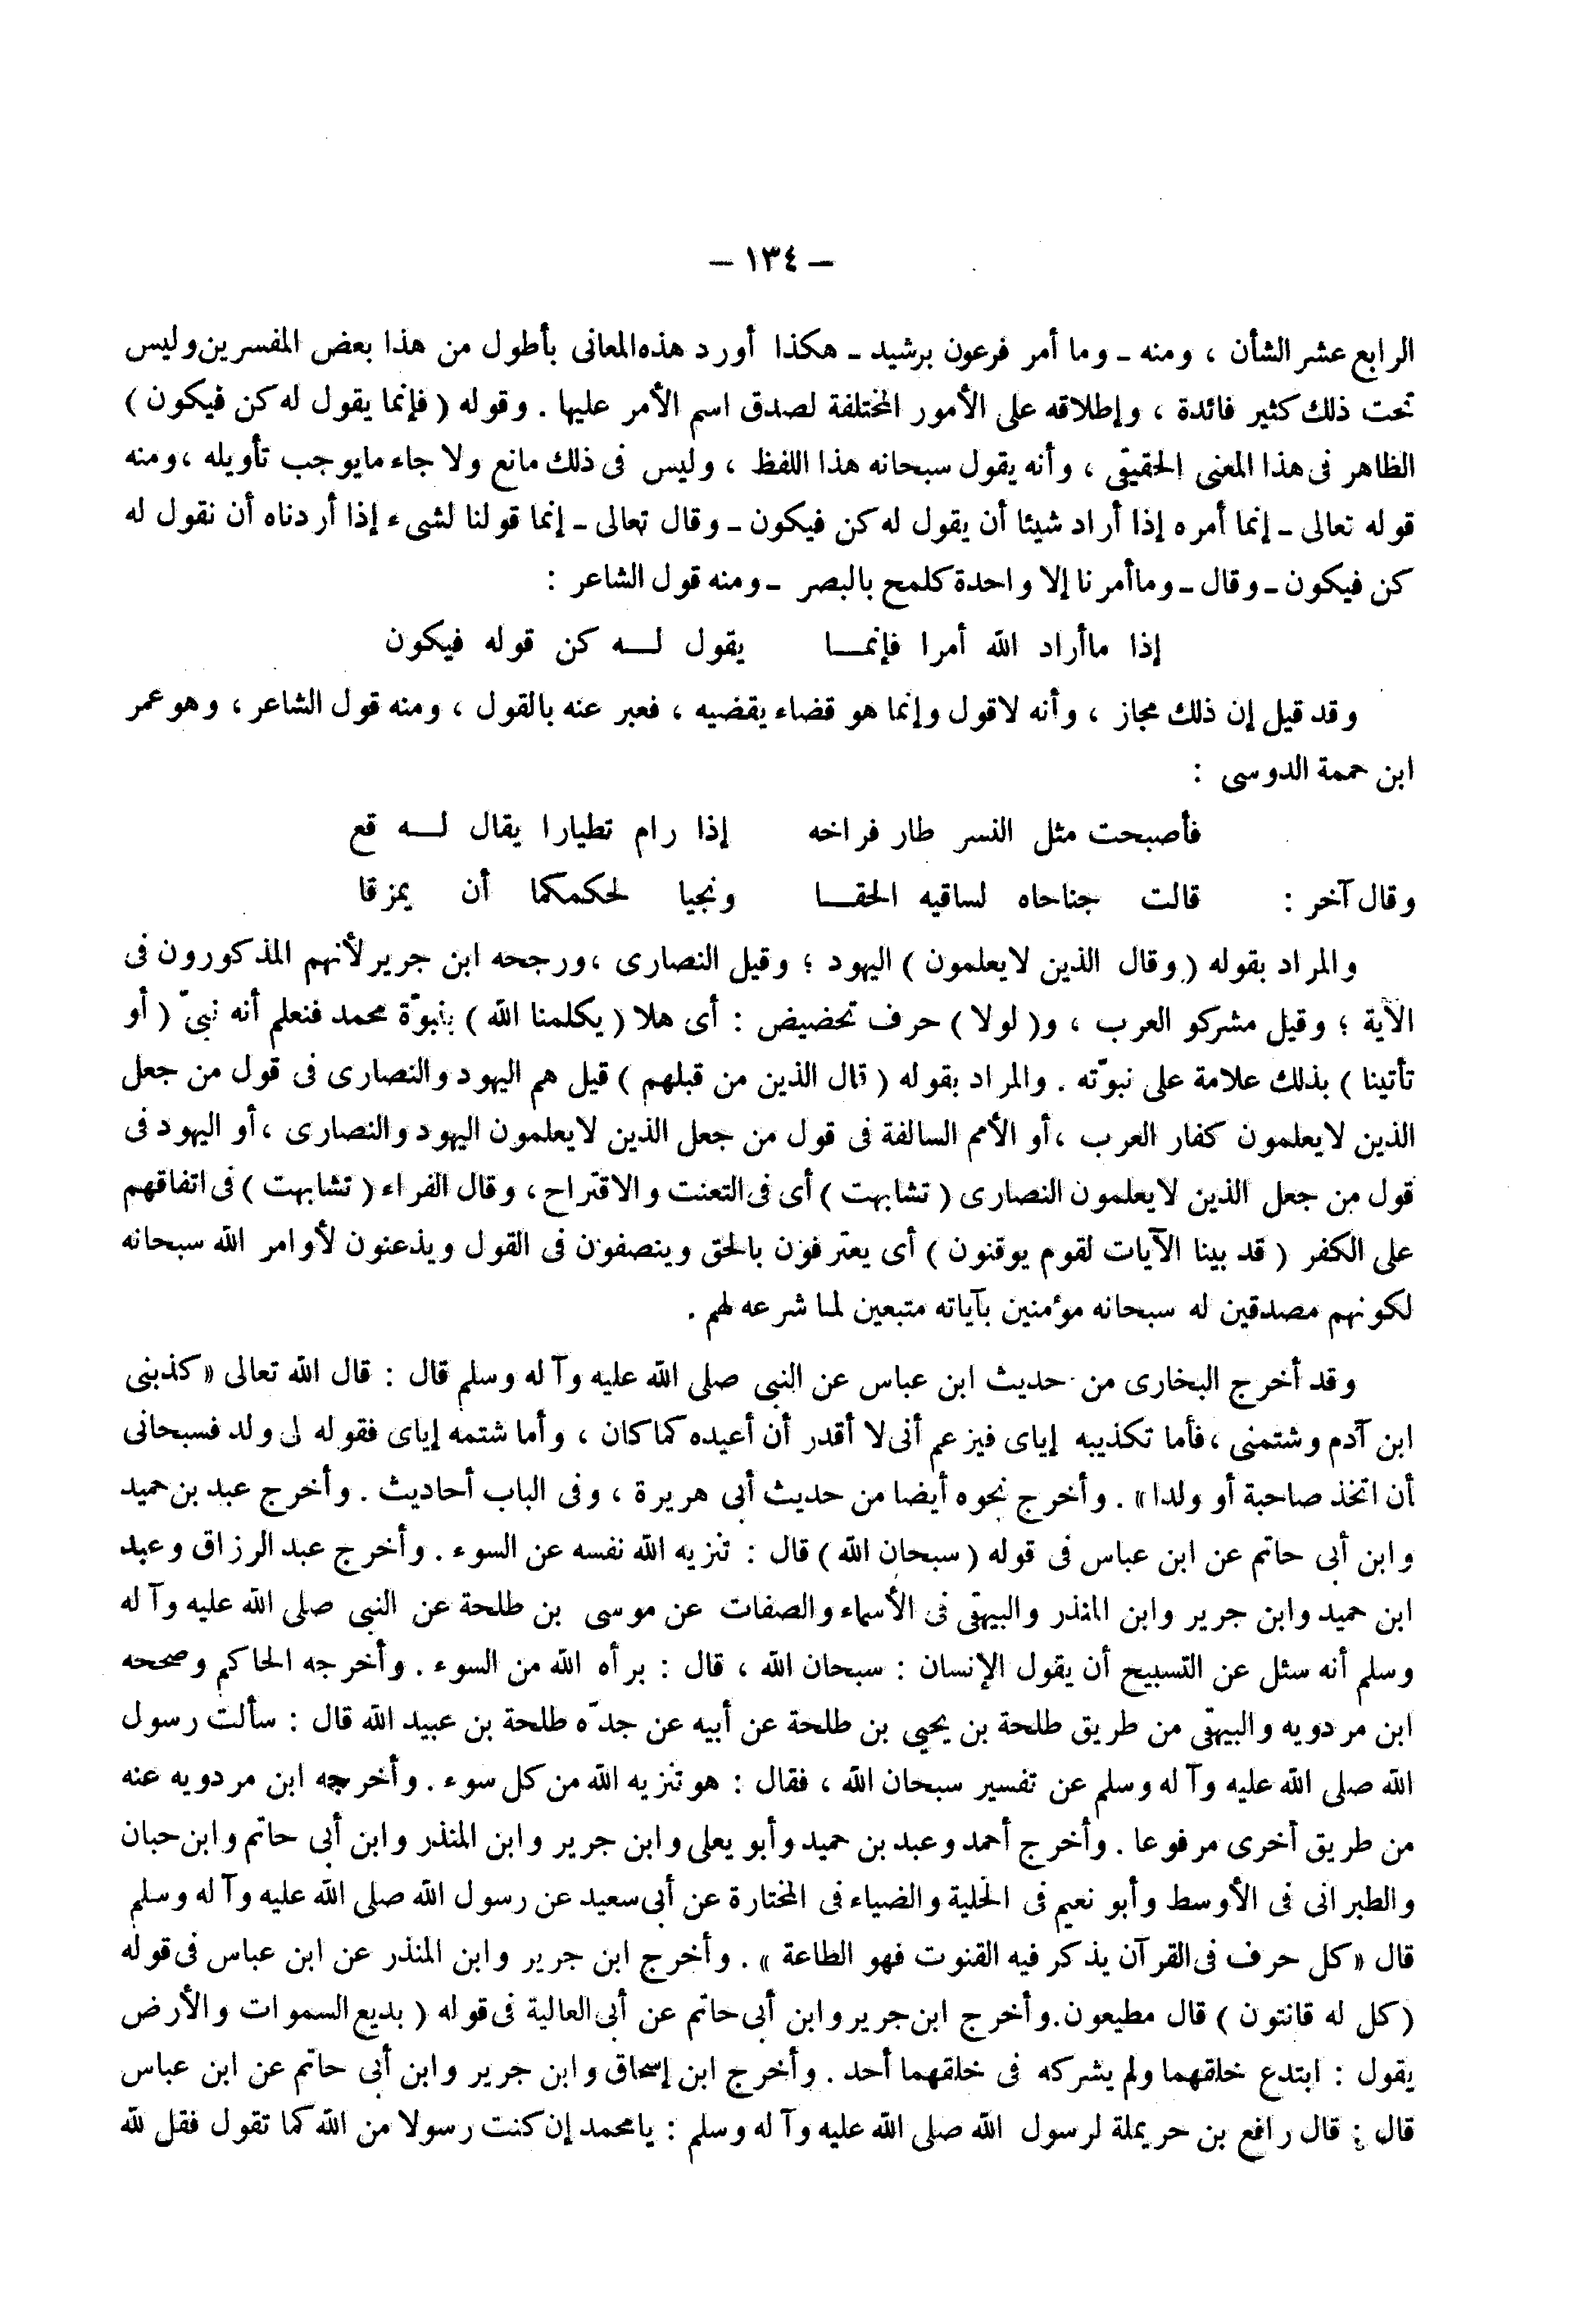 – ١٣٤ –
الرابع عشر الشأن ، ومنه ـ وما أمر فرعون برشيد ـ هكذا أورد هذه المعانى بأطول من هذا بعض المفسرين وليس
تحت ذلك كثير فائدة ، وإطلاقه على الأمور المختلفة لصدق اسم الأمر عليها . وقوله ( فإنما يقول له كن فيكون )
الظاهر فى هذا المعنى الحقيقى ، وأنه يقول سبحانه هذا اللفظ ، وليس فى ذلك مانع ولا جاء مايوجب تأويله ، ومنه
قوله تعالى ـ إنما أمره إذا أراد شيئا أن يقول له كن فيكون ـ وقال تعالى ـ إنما قولنا لشىء إذا أردناه أن نقول له
كن فيكون ـ وقال ـ وماأمرنا إلا واحدة كلمح بالبصر ـ ومنه قول الشاعر :
إذا ماأراد الله أمرا فإنمـــا يقول لـــه كن قوله فيكون
وقد قيل إن ذلك مجاز ، وأنه لاقول وإنما هو قضاء يقضيه ، فعبر عنه بالقول ، ومنه قول الشاعر ، وهو عمر
ابن حممة الدوسى :
فأصبحت مثل النسر طار فراخه إذا رام تطيارا يقال لـــه قع
وقال آخر : قالت جناحاه لساقيه الحقـــا ونجيا لحكمكما أن يمزقا
والمراد بقوله ( وقال الذين لايعلمون ) اليهود ؛ وقيل النصارى ، ورجحه ابن جرير لأنهم المذكورون فى
الآية ؛ وقيل مشركو العرب ، و( لولا ) حرف تحضيض : أى هلا ( يكلمنا الله ) بنبوّة محمد فنعلم أنه نبىّ ( أو
تأتينا ) بذلك علامة على نبوّته . والمراد بقوله ( قال الذين من قبلهم ) قيل هم اليهود والنصارى فى قول من جعل
الذين لايعلمون كفار العرب ، أو الأمم السالفة فى قول من جعل الذين لايعلمون اليهود والنصارى ، أو اليهود فى
قول من جعل الذين لايعلمون النصارى ( تشابهت ) أى فى التعنت والاقتراح ، وقال الفراء ( تشابهت ) فى اتفاقهم
على الكفر ( قد بينا الآيات لقوم يوقنون ) أى يعترفون بالحق وينصفون فى القول ويذعنون لأوامر الله سبحانه
لكونهم مصدقين له سبحانه مؤمنين بآياته متبعين لما شرعه لهم .
وقد أخرج البخارى من حديث ابن عباس عن النبى صلى الله عليه وآله وسلم قال : قال الله تعالى « كذبنى
ابن آدم وشتمنى ، فأما تكذيبه إياى فيزعم أنى لا أقدر أن أعيده كما كان ، وأما شتمه إياى فقوله لى ولد فسبحانى
أن اتخذ صاحبة أو ولدا » . وأخرج نحوه أيضا من حديث أبى هريرة ، وفى الباب أحاديث . وأخرج عبد بن حميد
وابن أبى حاتم عن ابن عباس فى قوله ( سبحان الله ) قال : تنزيه الله نفسه عن السوء . وأخرج عبد الرزاق وعبد
ابن حميد وابن جرير وابن المنذر والبيهقى فى الأسماء والصفات عن موسى بن طلحة عن النبى صلى الله عليه وآله
وسلم أنه سئل عن التسبيح أن يقول الإنسان : سبحان الله ، قال : برأه الله من السوء . وأخرجه الحاكم وصححه
ابن مردويه والبيهقى من طريق طلحة بن يحيى بن طلحة عن أبيه عن جدّه طلحة بن عبيد الله قال : سألت رسول
الله صلى الله عليه وآله وسلم عن تفسير سبحان الله ، فقال : هو تنزيه الله من كل سوء . وأخرجه ابن مردويه عنه
من طريق أخرى مرفوعا . وأخرج أحمد وعبد بن حميد وأبو يعلى وابن جرير وابن المنذر وابن أبى حاتم وابن حبان
والطبرانى فى الأوسط وأبو نعيم فى الحلية والضياء فى المختارة عن أبى سعيد عن رسول الله صلى الله عليه وآله وسلم
قال « كل حرف فى القرآن يذكر فيه القنوت فهو الطاعة » . وأخرج ابن جرير وابن المنذر عن ابن عباس فى قوله
( كل له قانتون ) قال مطيعون . وأخرج ابن جرير وابن أبى حاتم عن أبى العالية فى قوله ( بديع السموات والأرض
يقول : ابتدع خلقهما ولم يشركه فى خلقهما أحد . وأخرج ابن إسحاق وابن جرير وابن أبى حاتم عن ابن عباس
قال : قال رافع بن حريملة لرسول الله صلى الله عليه وآله وسلم : يامحمد إن كنت رسولا من الله كما تقول فقل لله